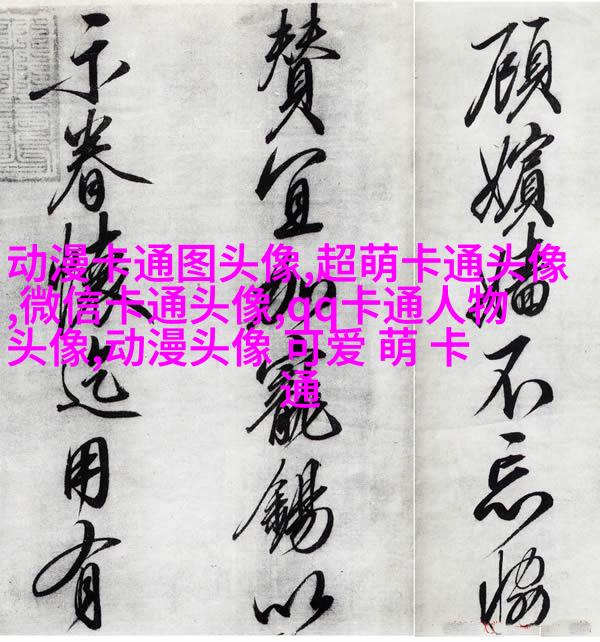 动漫卡通图头像,超萌卡通头像
,微信卡通头像,qq卡通人物
头像,动漫头像 可爱 萌 卡
通
顧嬪嬙不忘協
賛宜加寵錫以
示眷懷迄用有